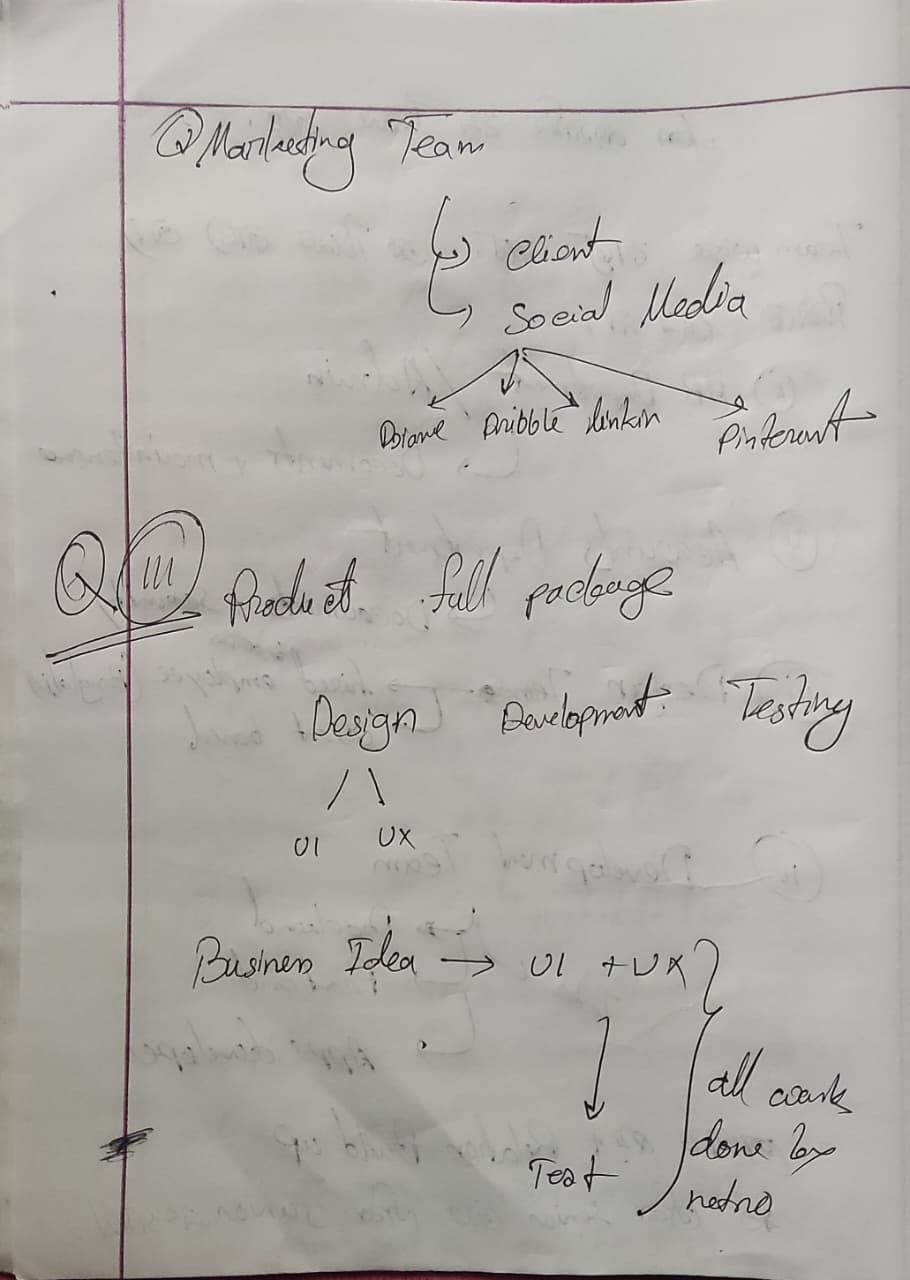 Q Marketing Team
Client
Social Media
Dribble linkin Pinterest
Q III Product full package
Design Development Testing
UI UX
Business Idea → UI + UX
all work
done by
Test